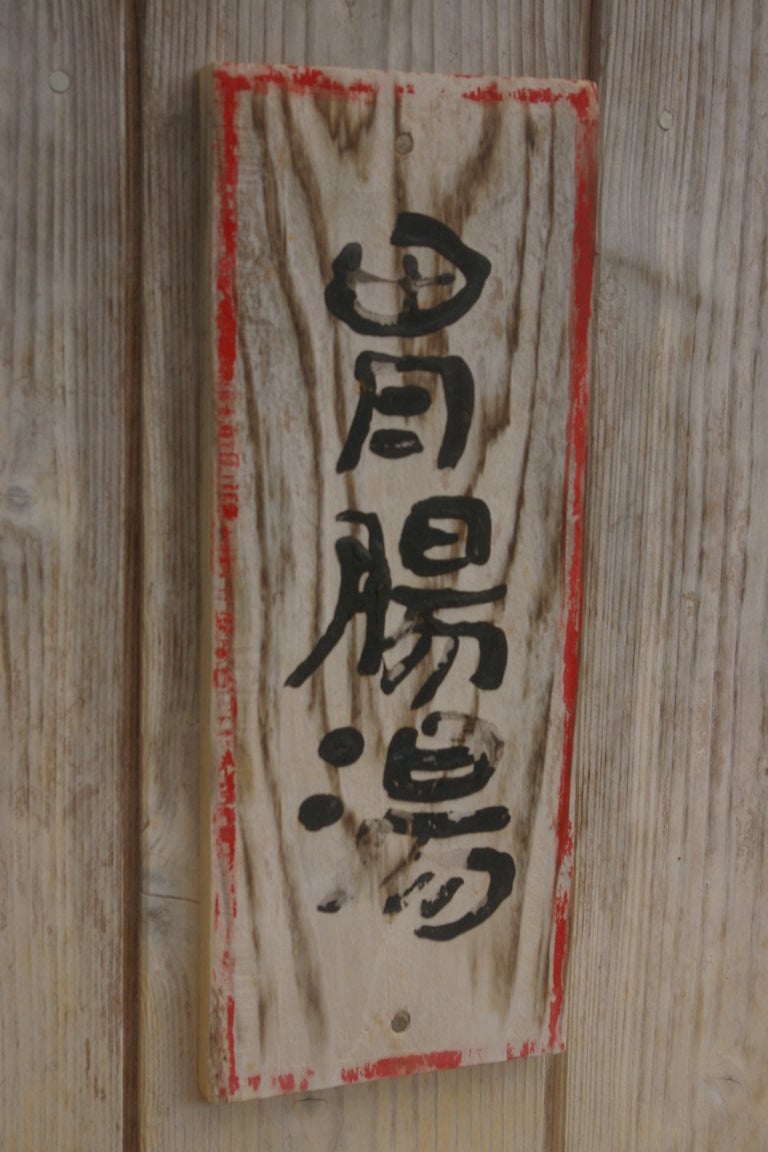 胃腸湯